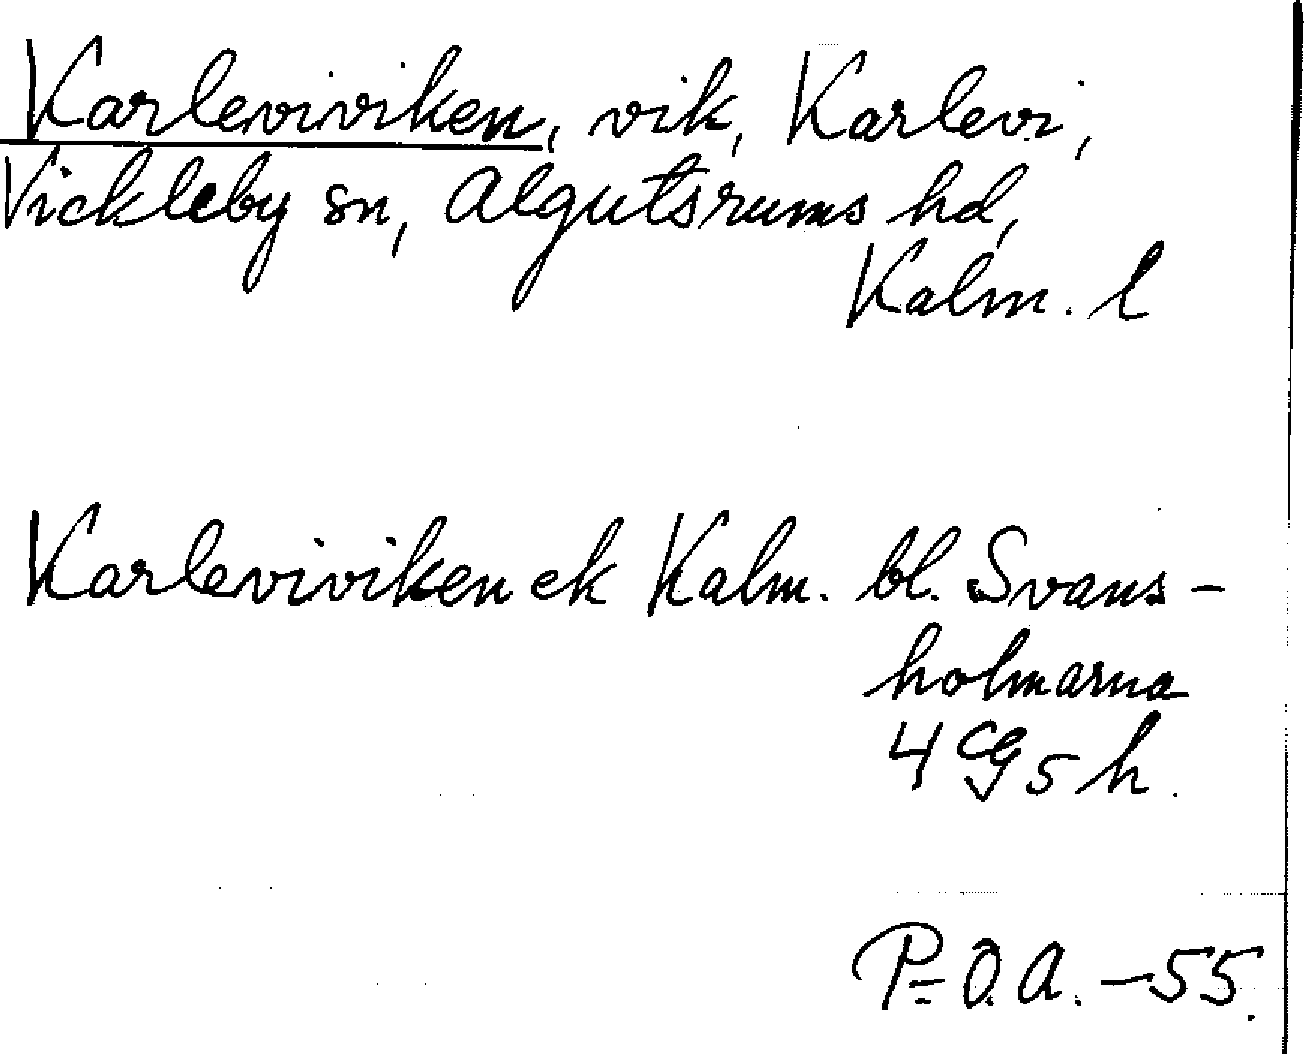 Karleviviken, vik, Karlevi,
Vickleby sn, Algutsrums hd,
Kalm. l
Karleviviken ek Kalm. bl. Svans-
holmarna
4 G 5 h.
P-O.A. -55.